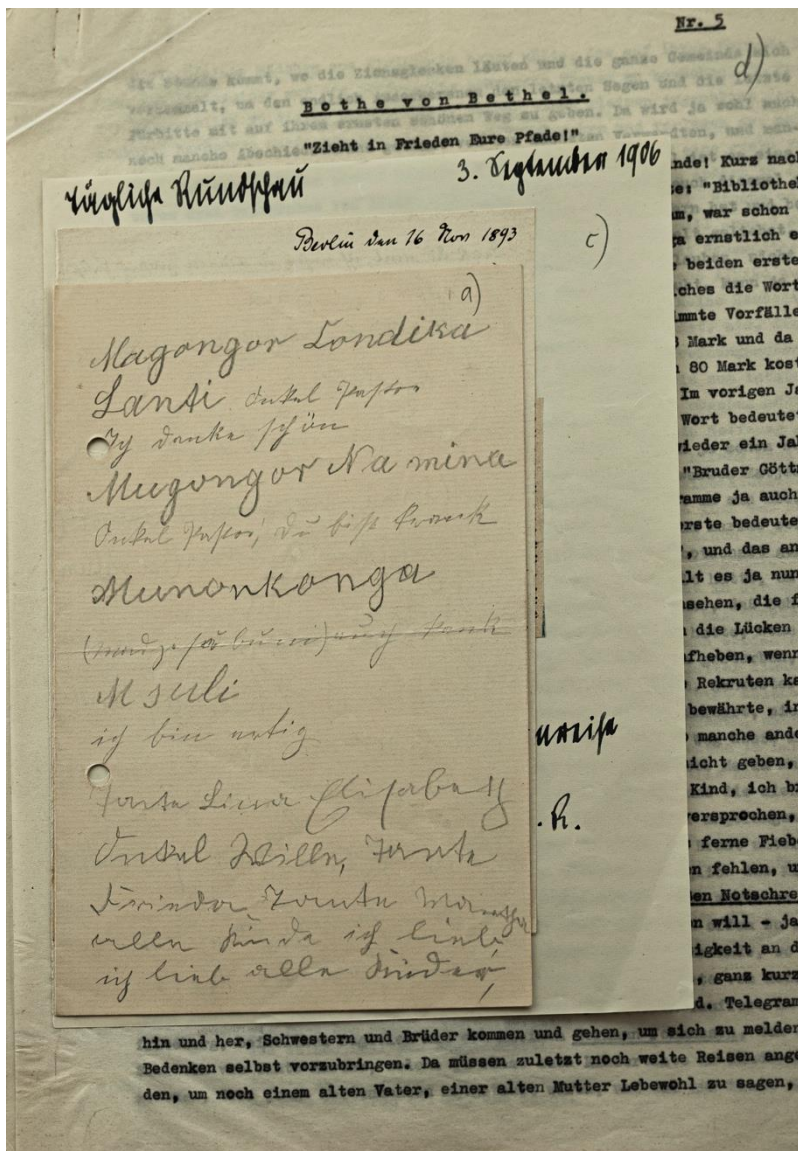 Nr. 5
d)
Bothe von Bethel.
"Zieht in Frieden Eure Pfade!"
Tägliche Rundschau 3. September 1906
Berlin den 16 Nov 1893
c)
a)
Magongor Londika
Santi Onkel Pastor
Ich danke schön
Mugongor Na mina
Onkel Pastor, du bist krank
Munonkonga
auch krank
Msuli
ich bin artig
Tante Lina Elisabeth
Onkel Wille, Tante
Frieda Tante Martha
alle Kinde ich lieb,
ich lieb alle Kinder,
nreise
.R.
nde! Kurz nach
e: "Bibliothek
m, war schon
a ernstlich e
beiden erste
ches die Wort
immte Vorfälle
Mark und da
80 Mark kost
Im vorigen Ja
Wort bedeute
wieder ein Jah
"Bruder Gött
ramme ja auch
erste bedeute
, und das an
lt es ja nun
sehen, die f
die Lücken
fheben, wenn
Rekruten ka
bewährte, in
manche ande
icht geben,
Kind, ich b
versprochen,
ferne Fieb
n fehlen, u
en Notschre
n will - ja
igkeit an d
, ganz kurz
d. Telegram
hin und her, Schwestern und Brüder kommen und gehen, um sich zu melden
Bedenken selbst vorzubringen. Da müssen zuletzt noch weite Reisen ange
den, um noch einem alten Vater, einer alten Mutter Lebewohl zu sagen,